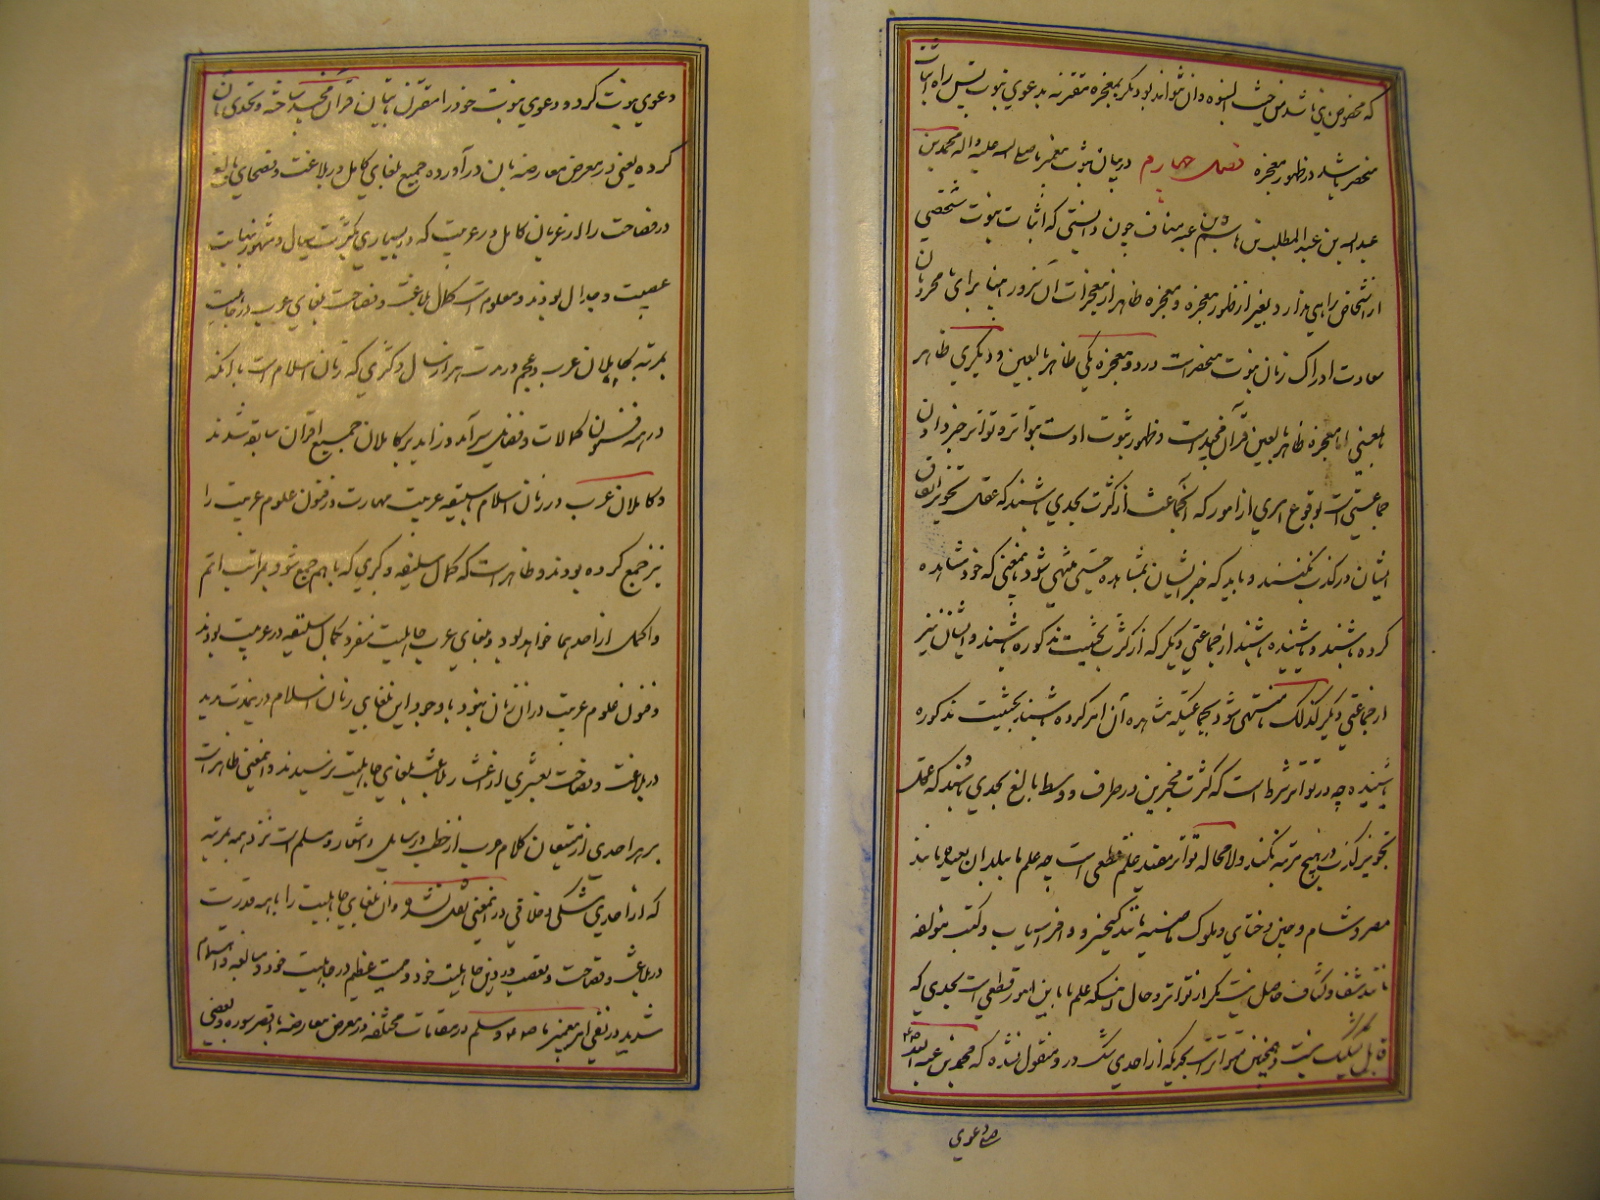 که مخصوص نبی باشد من حیث النبوه و آن نتواند بود مگر بمعجزه مقترنه بدعوی نبوت پس راه اثبات
منحصر باشد در ظهور معجزه فصل چهارم در بیان نبوت پیغمبر ما صلی الله علیه و اله محمد بن
عبدالله بن عبدالمطلب بن هاشم بن عبد مناف چون دانستی که اثبات نبوت شخصی
از اشخاص راهی ندارد بغیر از ظهور معجزه و معجزه ظاهر از معجزات آن سرور انبیا برای محرومان
سعادت ادراک زمان نبوت منحصر است در دو معجزه یکی ظاهر بالعین و دیگری ظاهر
بالمعنی اما معجزه ظاهر بالعین قرآن مجید است و ظهور ثبوت اوست بتواتر و تواتر خبر دادن
جماعتی است بوقوع امری از امور که آن جماعت از کثرت بحدی باشند که عقل تجویز اتفاق
ایشان در کذب نکند و باید که خبر ایشان بمشاهده حسی منتهی شود بمعنی که خود مشاهده
کرده باشند و یا شنیده باشند از جماعتی دیگر که از کثرت بحیثیت مذکوره باشند و ایشان نیز
از جماعتی دیگر کذلک تا منتهی شود بجماعتی که مشاهده آن امر کرده باشند بحیثیت مذکوره
شنیده چه در تواتر شرط است که کثرت مخبرین در طرف و وسط بالغ بحدی باشند که عقل
تجویز کذب در هیچ مرتبه نکند و لا محاله تواتر مفید علم قطعی است چه علم ما ببلدان بعیده مانند
مصر و شام و چین و ختای و ملوک ماضیه مانند کیخسرو و افراسیاب و کتب مؤلفه
مانند شفا و کشاف حاصل نیست مگر از تواتر و حال آنکه علم ما باین امور قطعی است بحدی که
قابل تشکیک نیست و همچنین متواتر است بحدیکه از احدی شک در او منقول نشده که محمد بن عبدالله
دعوی
دعوی نبوت کرده و دعوی نبوت خود را مقترن باتیان قرآن مجید ساخته و تحدی بآن
کرده یعنی در معرض معارضه بآن در آورده جمیع بلغای کامل در بلاغت و فصحای بالغ
در فصاحت را از عربان کامل در عربیت که در بسیاری بکثرت و مشهور بنهایت
عصبیت و جدال بودند و معلوم است کمال بلاغت و فصاحت بلغای عرب در جاهلیت
بمرتبه که کاملان عرب و عجم در مدت هزار سال و کسری که زمان اسلام است با آنکه
در همه فنون کمالات و فضایل سرآمد و زاید بر کاملان جمیع اقران سابقه شدند
و کاملان عرب در زمان اسلام سلیقه عربیت مهارت در فنون علوم عربیت را
نیز جمع کرده بودند و ظاهر است که کمال سلیقه و کسبی که با هم جمع شود بمراتب اتم
و اکمل از احدهما خواهد بود و بلغای عرب جاهلیت منفرد بکمال سلیقه در عربیت بودند
و فنون علوم عربیت در آن زمان نبود با وجود این بلغای زمان اسلام درین مدت مدید
در بلاغت و فصاحت بعشری از اعشار بلاغت بلغای جاهلیت نرسیدند و این معنی ظاهر است
بر هر احدی از متتبعان کلام عرب از خطب و رسایل و اشعار و مسلم است نزد همه بمرتبه
که از احدی شکی و خلافی در این معنی نقل نشده و آن بلغای جاهلیت را با همه قدرت
در بلاغت و فصاحت و تعصب در دین جاهلیت خود و حمیت عظیم در جاهلیت خود و مبالغه و اهتمام
شدید در نفی امر پیغمبر ما صلعم و سلم در مقامات مختلفه در معرض معارضه باقصر سوره و بعضی